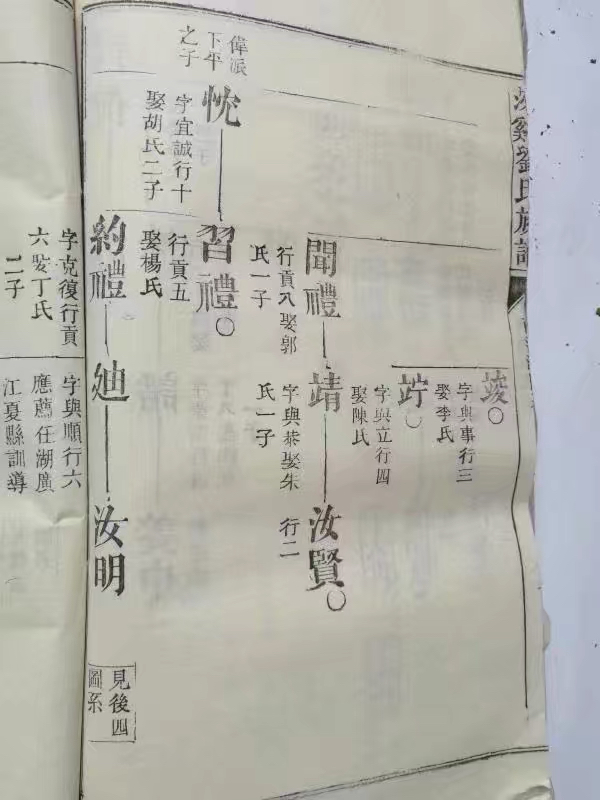 谿劉氏族譜
竣○
字與事行三
娶李氏
竚○
字與立行四
娶陳氏
聞禮
行貢八娶郭
氏一子
靖
字與恭娶朱
氏一子
汝賢○
行二
偉派
下平
之子
忱
字宜誠行十
娶胡氏二子
習禮○
行貢五
娶楊氏
約禮
廸
汝明
見後四
圖系
字克復行貢
六娶丁氏
二子
字與順行六
應薦任湖廣
江夏縣訓導